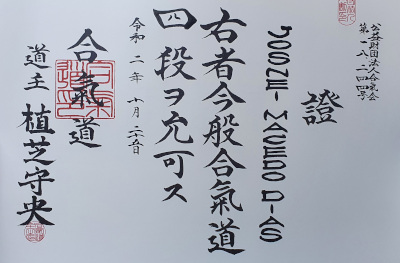 公益財団法人合気会
第一八二四四号
證
JOSNEI-MACEDO DIAS
右者今般合氣道
四段ヲ允可ス
令和二年十月
合氣道
道主 植芝守央